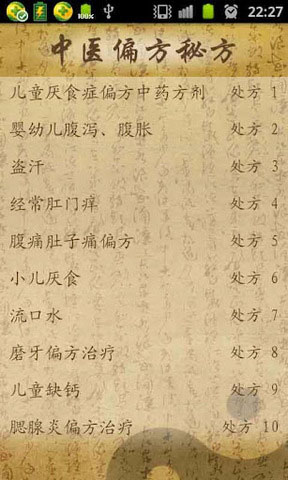 100%
22:27
中医偏方秘方
儿童厌食症偏方中药方剂 处方 1
婴幼儿腹泻、腹胀 处方 2
盗汗 处方 3
经常肛门痒 处方 4
腹痛肚子痛偏方 处方 5
小儿厌食 处方 6
流口水 处方 7
磨牙偏方治疗 处方 8
儿童缺钙 处方 9
腮腺炎偏方治疗 处方 10